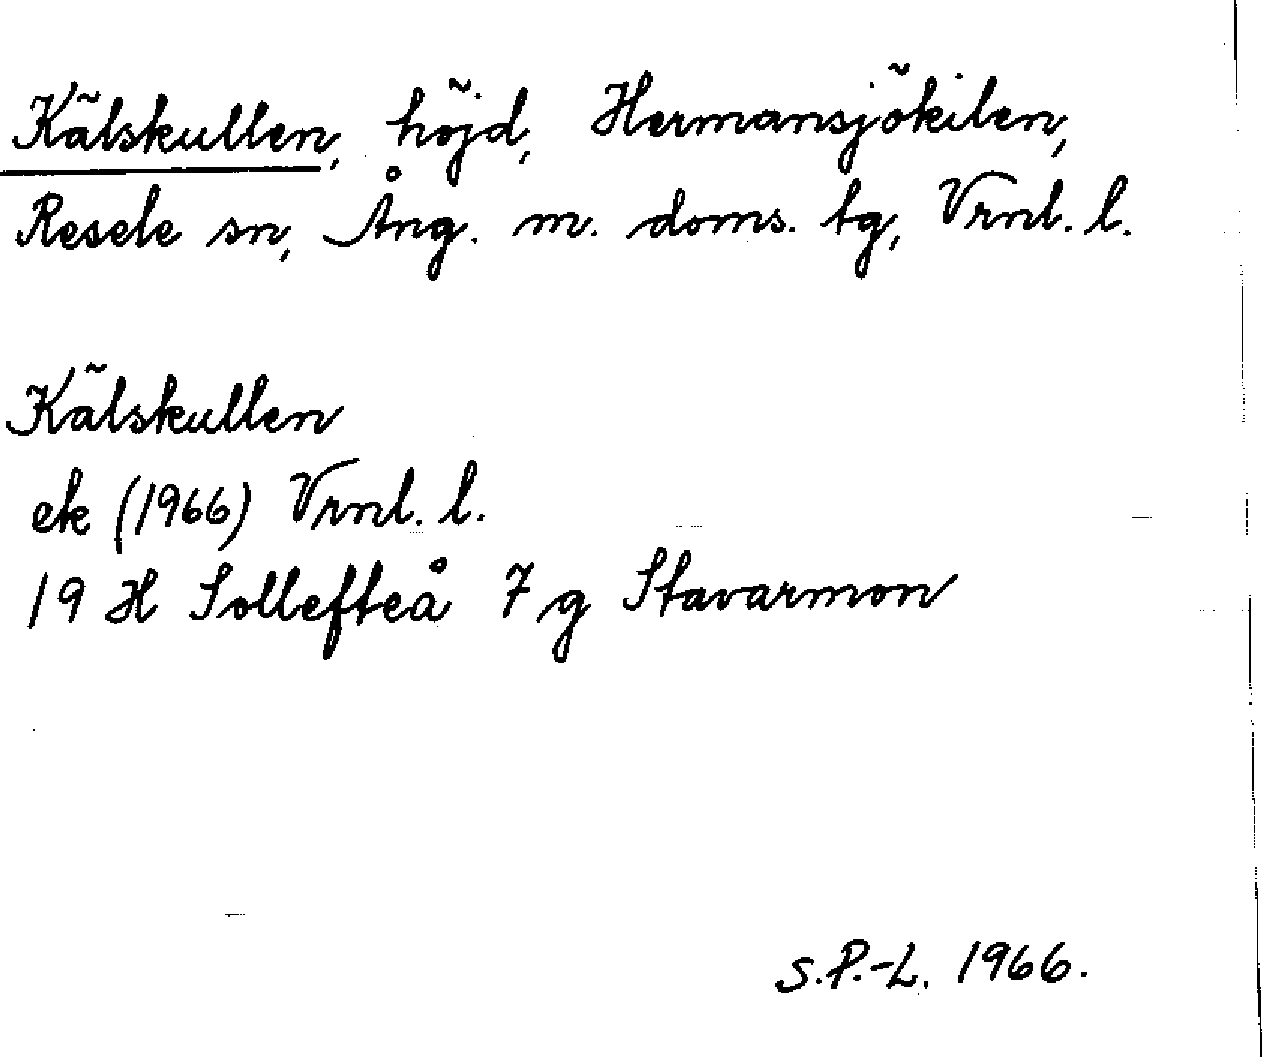 Kälskullen, höjd, Hermansjökilen,
Resele sn, Ång. m. doms. tg, Vrnl. l.
Kälskullen
ek (1966) Vrnl. l.
19 H Sollefteå 7 g Stavarmon
S.P.-L. 1966.